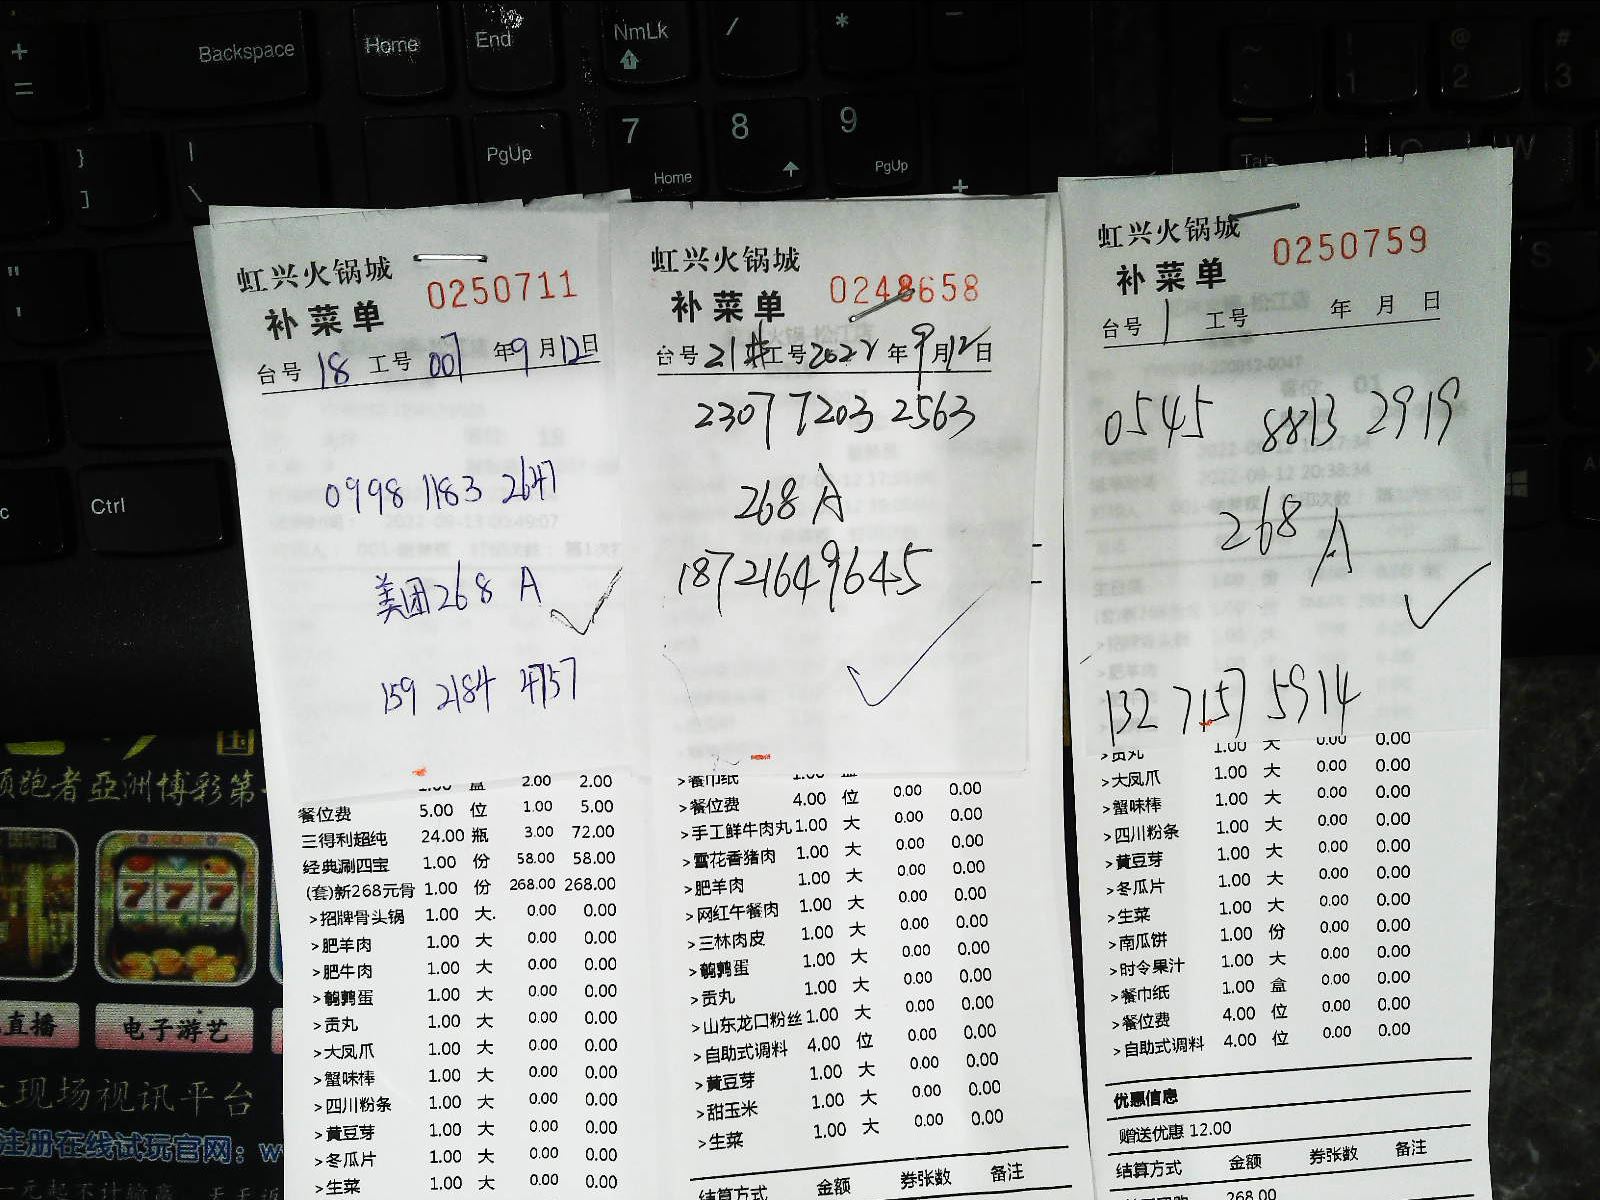 +
=
Backspace
Home
End
NmLk
/
*
-
~
!
1
@
2
#
3
}
]
|
\
PgUp
7
Home
8
9
PgUp
+
Tab
Q
W
"
'
S
Ctrl
虹兴火锅城
0250711
补菜单
台号 18 工号 007 年9月12日
0998 1183 2647
美团268 A
159 2184 4757
1.00 盒 2.00 2.00
餐位费 5.00 位 1.00 5.00
三得利超纯 24.00 瓶 3.00 72.00
经典涮四宝 1.00 份 58.00 58.00
(套)新268元骨 1.00 份 268.00 268.00
>招牌骨头锅 1.00 大. 0.00 0.00
>肥羊肉 1.00 大 0.00 0.00
>肥牛肉 1.00 大 0.00 0.00
>鹌鹑蛋 1.00 大 0.00 0.00
>贡丸 1.00 大 0.00 0.00
>大凤爪 1.00 大 0.00 0.00
>蟹味棒 1.00 大 0.00 0.00
>四川粉条 1.00 大 0.00 0.00
>黄豆芽 1.00 大 0.00 0.00
>冬瓜片 1.00 大 0.00 0.00
>生菜 1.00 大 0.00 0.00
虹兴火锅城
0248658
补菜单
台号 21 工号 2022 年9月12日
2307 7203 2563
268 A
18721649645
>餐巾纸 1.00 盒
>餐位费 4.00 位 0.00 0.00
>手工鲜牛肉丸 1.00 大 0.00 0.00
>雪花香猪肉 1.00 大 0.00 0.00
>肥羊肉 1.00 大 0.00 0.00
>网红午餐肉 1.00 大 0.00 0.00
>三林肉皮 1.00 大 0.00 0.00
>鹌鹑蛋 1.00 大 0.00 0.00
>贡丸 1.00 大 0.00 0.00
>山东龙口粉丝 1.00 大 0.00 0.00
>自助式调料 4.00 位 0.00 0.00
>黄豆芽 1.00 大 0.00 0.00
>甜玉米 1.00 大 0.00 0.00
>生菜 1.00 大 0.00 0.00
结算方式 金额 券张数 备注
虹兴火锅城
0250759
补菜单
台号 1 工号 年 月 日
0545 8813 2919
268 A
132 7157 5914
>贡丸 1.00 大 0.00 0.00
>大凤爪 1.00 大 0.00 0.00
>蟹味棒 1.00 大 0.00 0.00
>四川粉条 1.00 大 0.00 0.00
>黄豆芽 1.00 大 0.00 0.00
>冬瓜片 1.00 大 0.00 0.00
>生菜 1.00 大 0.00 0.00
>南瓜饼 1.00 份 0.00 0.00
>时令果汁 1.00 大 0.00 0.00
>餐巾纸 1.00 盒 0.00 0.00
>餐位费 4.00 位 0.00 0.00
>自助式调料 4.00 位 0.00 0.00
优惠信息
赠送优惠 12.00
结算方式 金额 券张数 备注
268.00
国
领跑者亞洲博彩第
777
直播
电子游艺
现场视讯平台
注册在线试玩官网：w